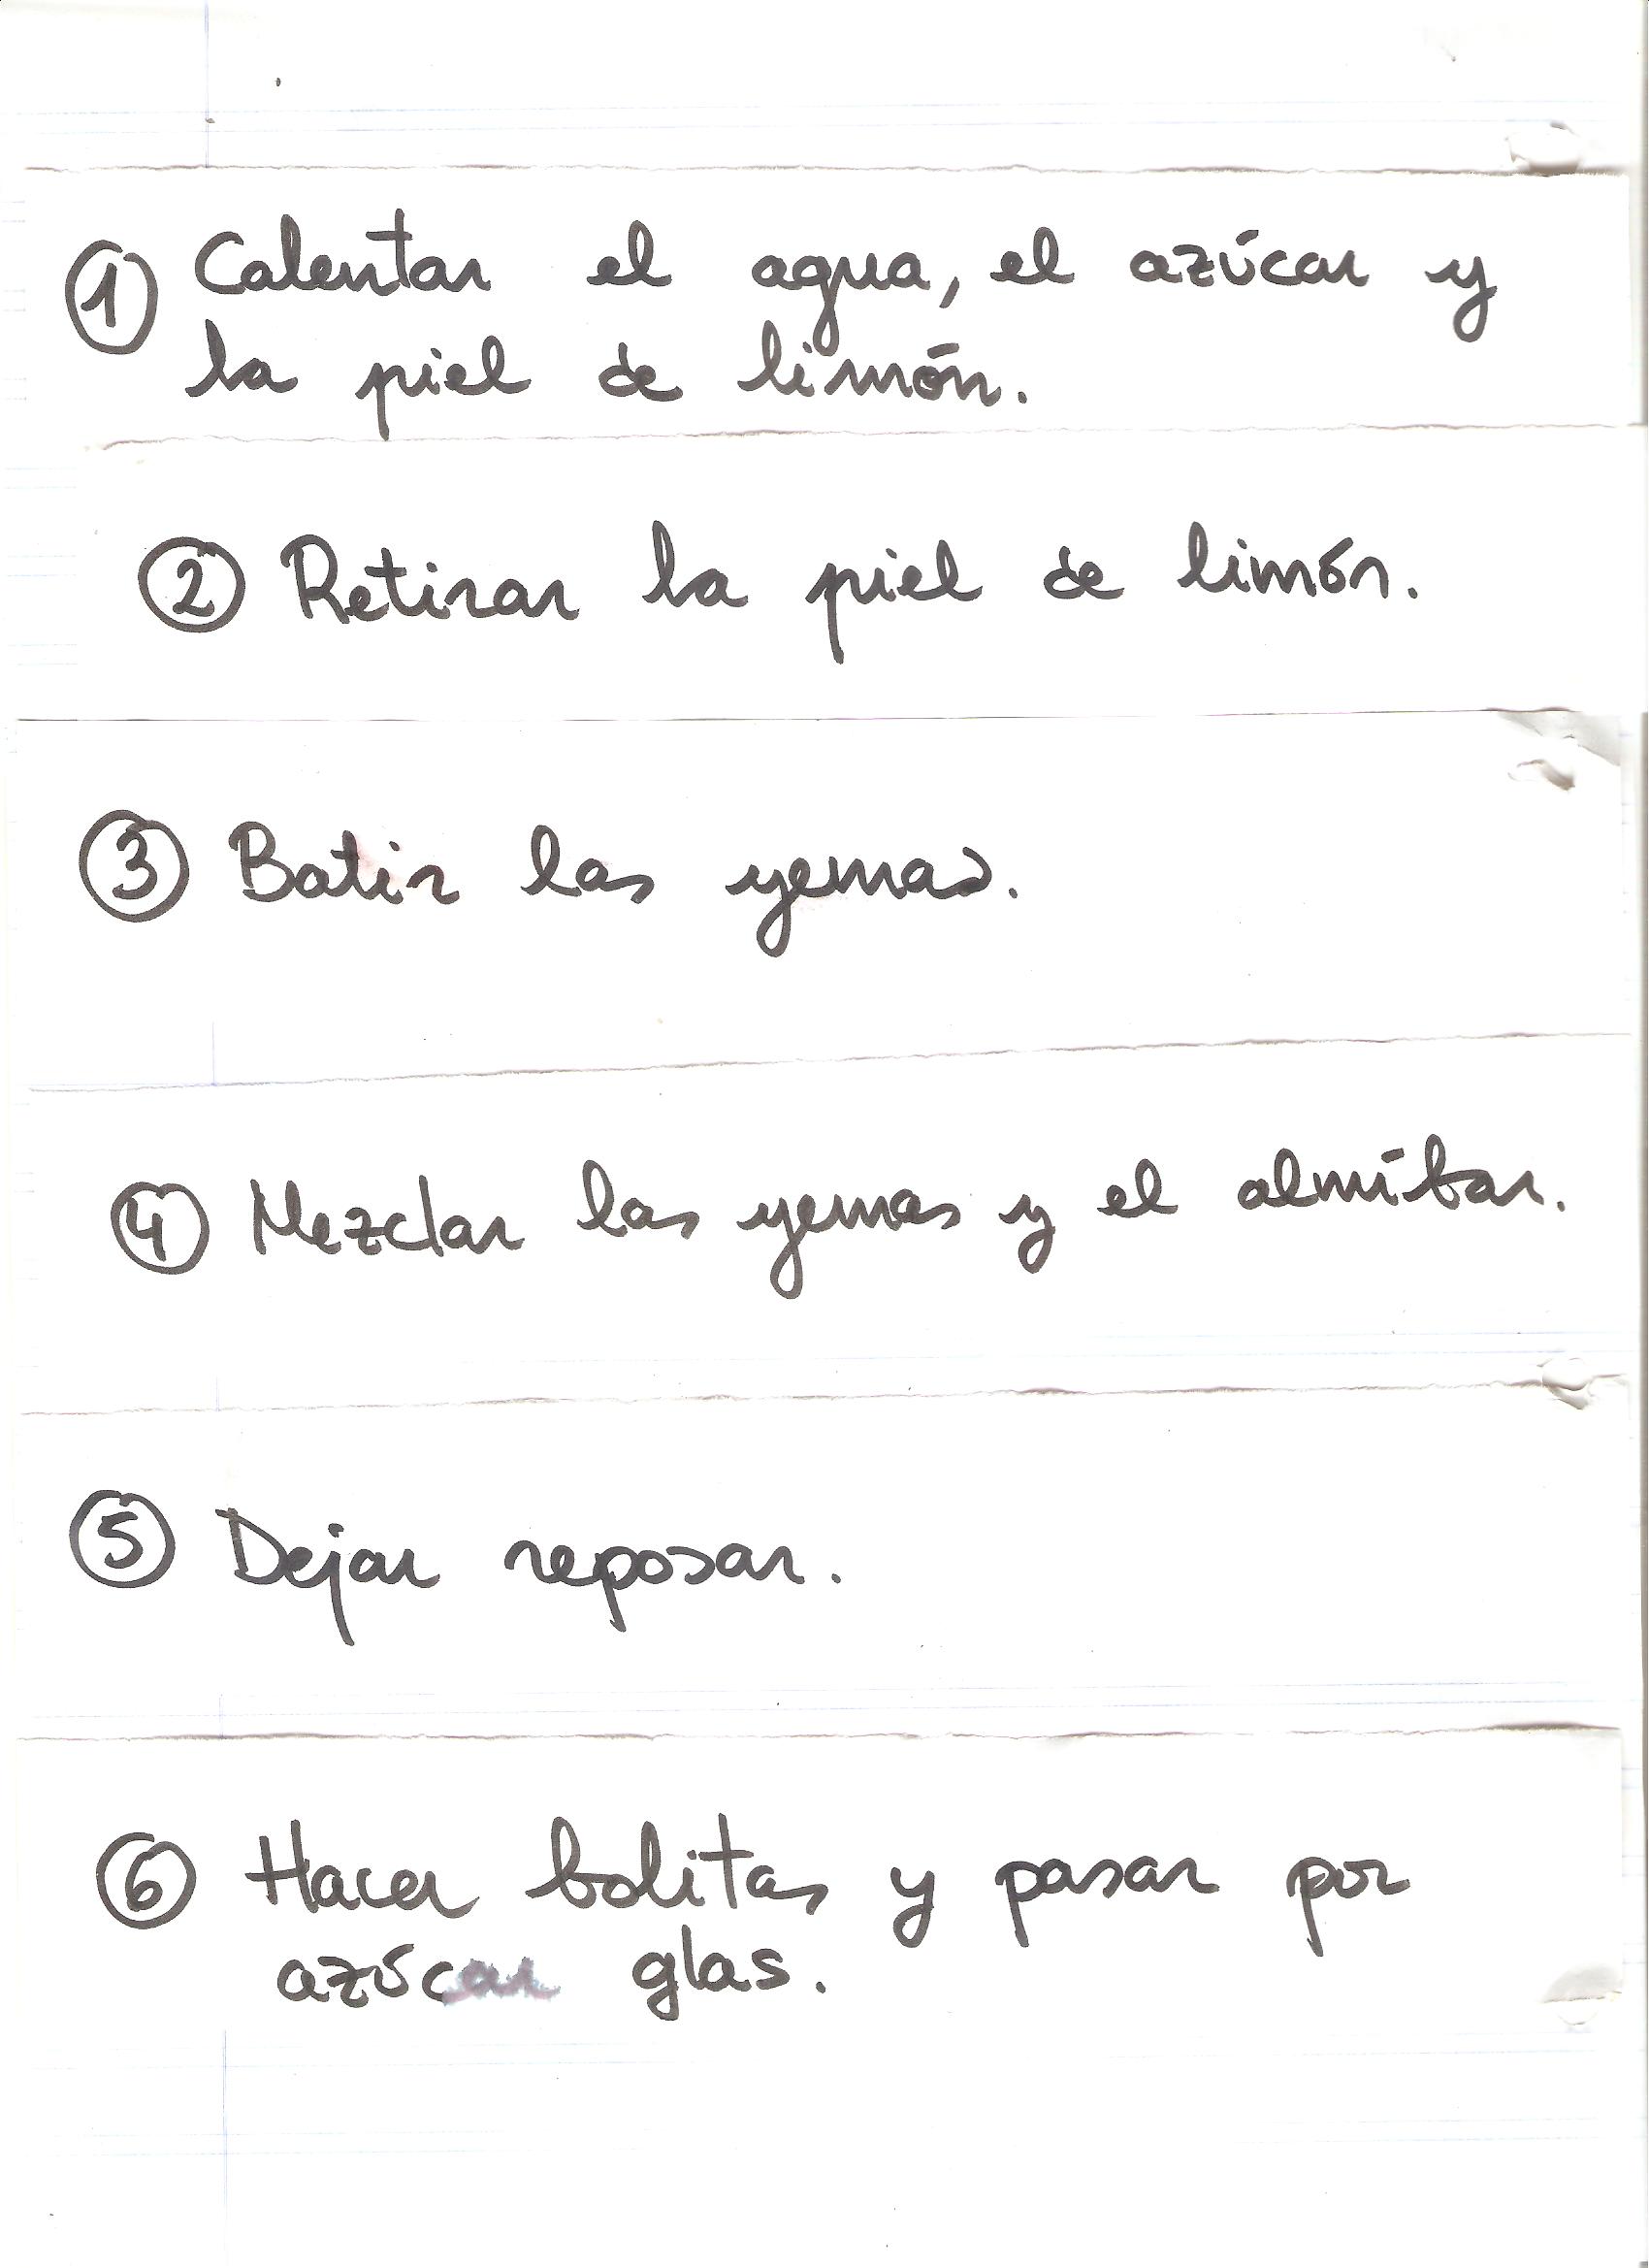 ① Calentar el agua, el azúcar y
la piel de limón.
② Retirar la piel de limón.
③ Batir las yemas.
④ Mezclar las yemas y el almíbar.
⑤ Dejar reposar.
⑥ Hacer bolitas y pasar por
azúcar glas.